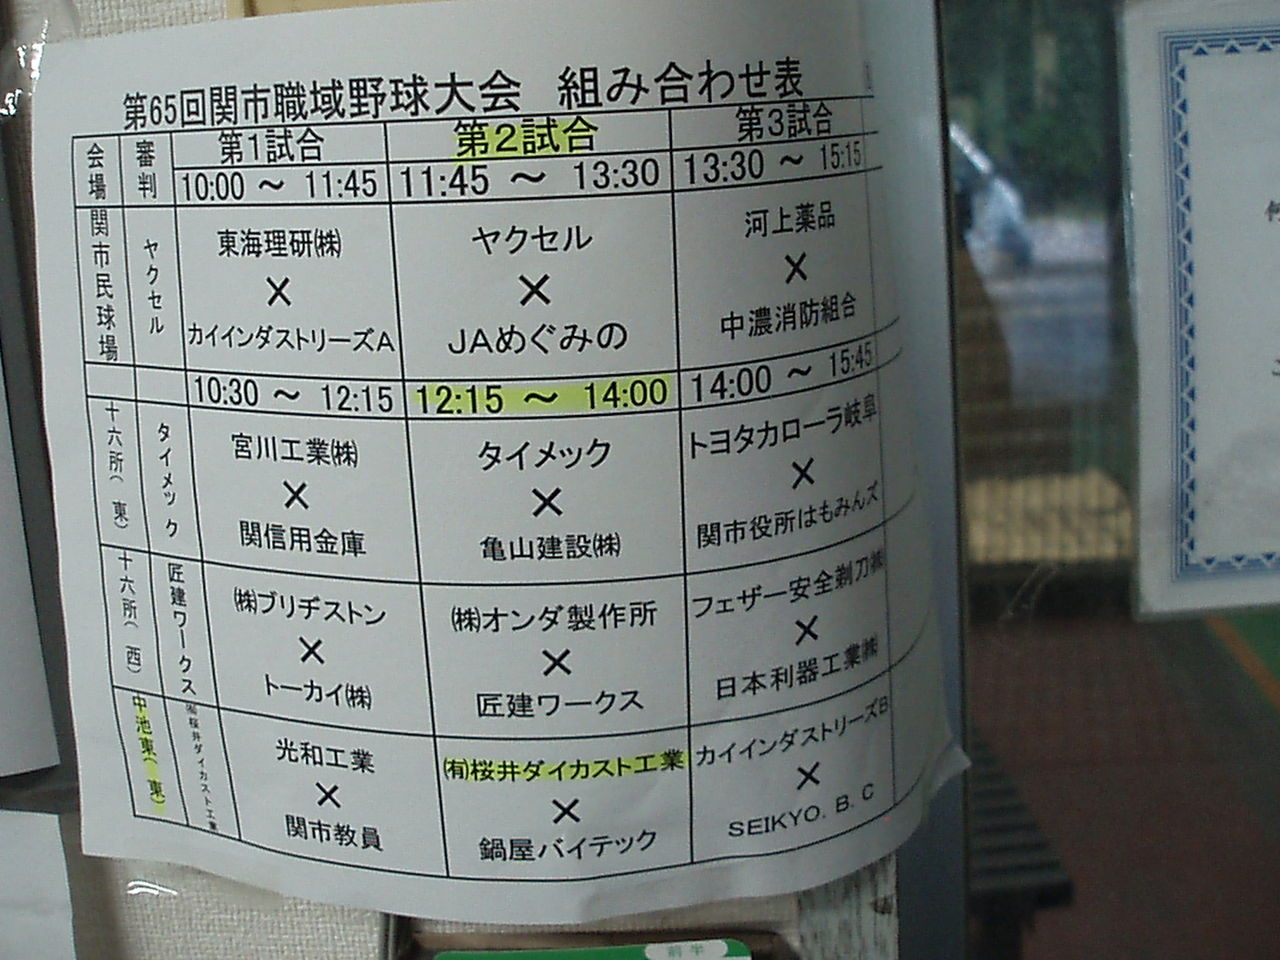 第65回関市職域野球大会 組み合わせ表
会場 審判 第1試合 第2試合 第3試合
10:00 ～ 11:45 11:45 ～ 13:30 13:30 ～ 15:15
関市民球場 ヤクセル 東海理研㈱ ヤクセル 河上薬品
× × ×
カイインダストリーズA JAめぐみの 中濃消防組合
10:30 ～ 12:15 12:15 ～ 14:00 14:00 ～ 15:45
十六所(東) タイメック 宮川工業㈱ タイメック トヨタカローラ岐阜
× × ×
関信用金庫 亀山建設㈱ 関市役所はもみんズ
十六所(西) 匠建ワークス ㈱ブリヂストン ㈱オンダ製作所 フェザー安全剃刀㈱
× × ×
トーカイ㈱ 匠建ワークス 日本利器工業㈱
中池東(東) ㈲桜井ダイカスト工業 光和工業 ㈲桜井ダイカスト工業 カイインダストリーズB
× × ×
関市教員 鍋屋バイテック SEIKYO. B. C